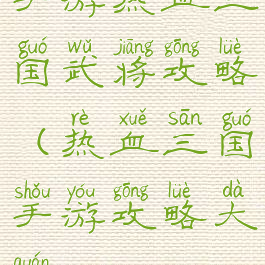 手游热血三
guó wǔ jiāng gōng lüè
国武将攻略
rè xuě sān guó
（热血三国
shǒu yóu gōng lüè dà
手游攻略大
quán